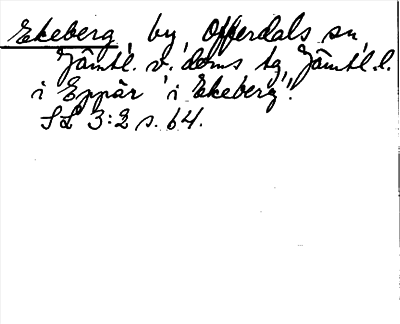 Ekeberg, by, Offerdals sn,
Jämtl. v. doms tg, Jämtl. l.
i Eppär "i Ekeberg".
SL 3:2 s. 64.